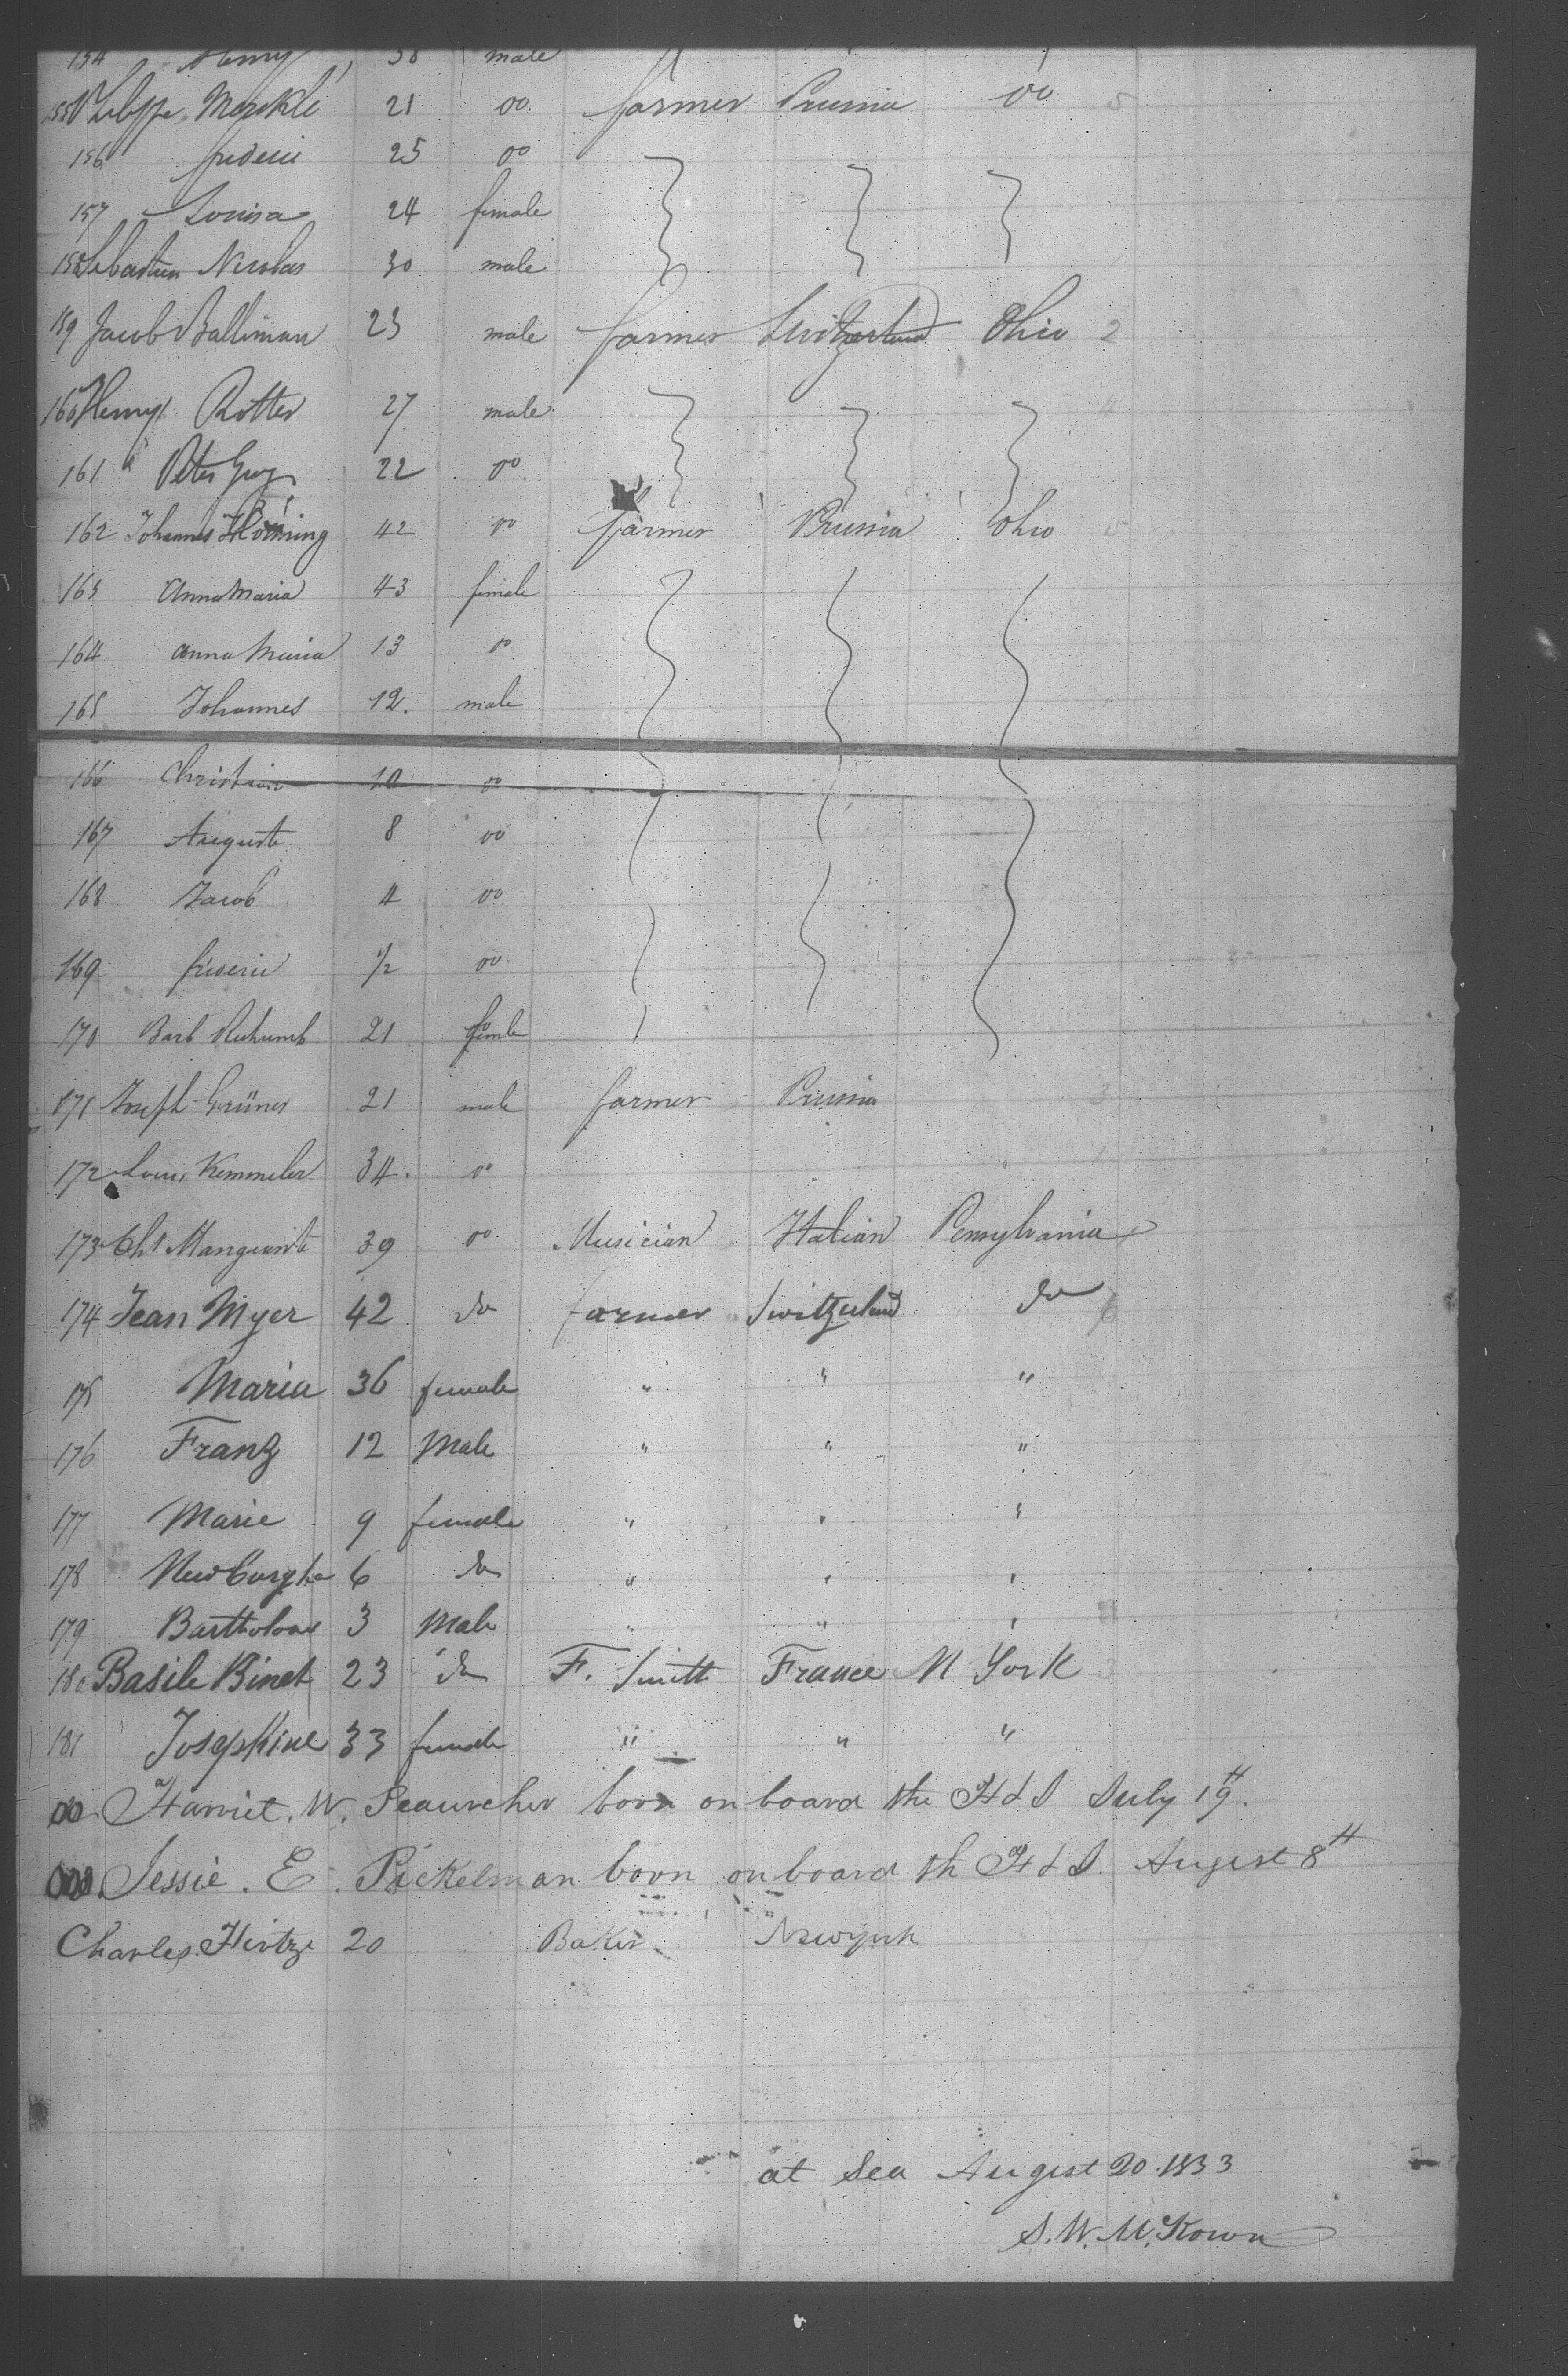 154 Henry 38 male
155 Morkle 21 do farmer Prussia do 5
156 frederic 25 do
157 Louisa 24 female
158 Sebastien Nicolas 30 male
159 Jacob Balliman 23 male farmer Switzerland Ohio 2
160 Henry Rotter 27 male 4
161 " Peter 22 do
162 Johannes 42 do farmer Prussia Ohio
163 Anna Maria 43 female
164 anna Maria 13 do
165 Johannes 12. male
166 Christian 10 do
167 Auguste 8 do
168 Jacob 4 do
169 frederic 1/2 do
170 Barb 21 femle
171 Joseph Grüner 21 male farmer Prussia 3
172 Louis Kemmeler 34. do
173 Chs 39 do Musician Italian Pensylvania
174 Jean Myer 42 do farmer Switzerland do 6
175 Maria 36 female " " "
176 Franz 12 Male " " "
177 Marie 9 female " " "
178 6 do " " "
179 3 Male " " "
180 Basile Binet 23 do F. Smith France N York 3
181 Josephine 33 female " " "
Harriet. W. born on board the H & S July 19th.
Jessie. E. Pickelman born on board th H & S. August 8th
Charles Hirtze 20 Baker Newyork
at Sea August 20. 1833
S. W. McKown